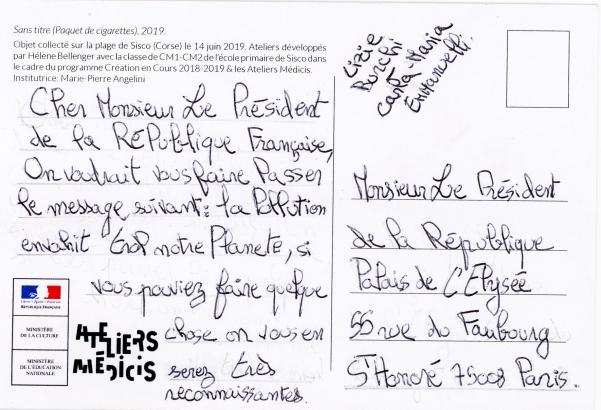 Sans titre (Paquet de cigarettes), 2019.
Objet collecté sur la plage de Sisco (Corse) le 14 juin 2019. Ateliers développés
par Hélène Bellenger avec la classe de CM1-CM2 de l'école primaire de Sisco dans
le cadre du programme Création en Cours 2018-2019 & les Ateliers Médicis.
Institutrice: Marie-Pierre Angelini
Cher Monsieur Le Président
de la République Française,
On voudrait vous faire Passer
le message suivant: la Pollution
envahit trop notre Planete, si
vous pouviez faire quelque
chose on vous en
serez très
reconnaissantes.
RÉPUBLIQUE FRANÇAISE
MINISTÈRE
DE LA CULTURE
MINISTÈRE
DE L'ÉDUCATION
NATIONALE
ATELIERS
MÉDICIS
Lizie
Burchi
Carla-Maria
Emmanuelli.
Monsieur Le Président
de la République
Palais de L'Elysée
55 rue du Faubourg
St Honoré 75008 Paris.